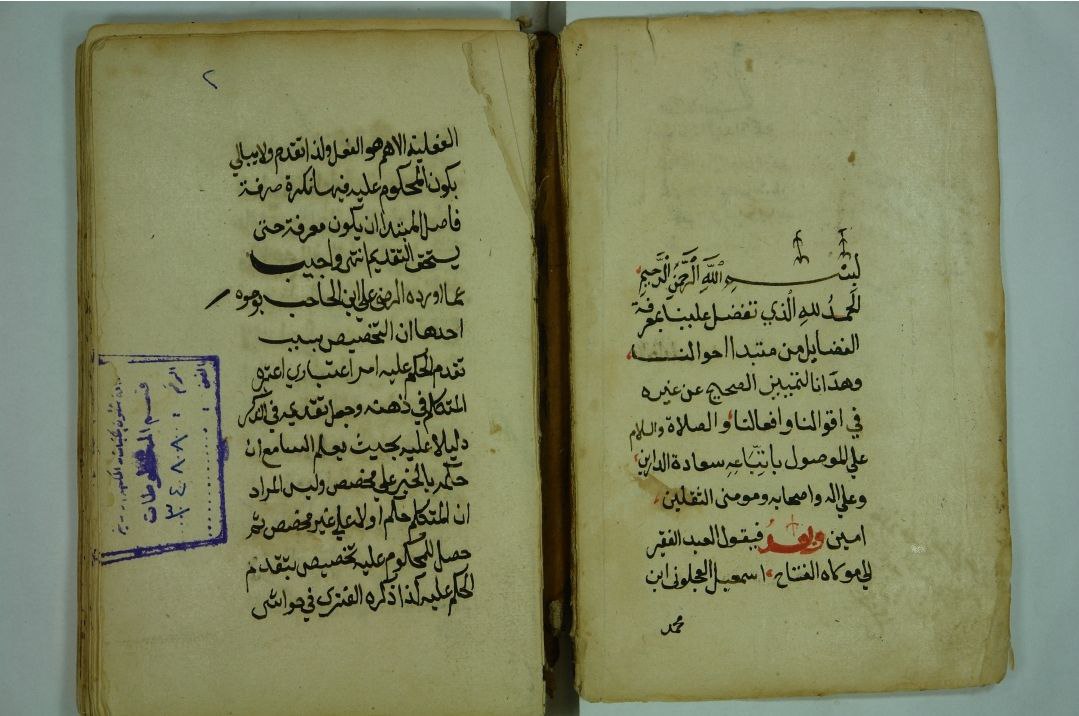 بسم الله الرحمن الرحيم
الحمد لله الذي تفضل علينا بمعرفة
الفضايل من مبتدا احوالنا
وهدانا لتمييز الصحيح عن غيره
في اقوالنا وافعالنا والصلاة والسلام
على الموصول باتباعه سعادة الدارين
وعلى اله واصحابه ومومنى الثقلين
امين وبعد فيقول العبد الفقير
الى مولاه الفتاح اسمعيل العجلونى ابن
محمد
٢
الفعلية الاهم هو الفعل ولذا تقدم ولا يبالي
بكون المحكوم عليه فيها نكرة صرفة
فاصل المبتدا ان يكون معرفة حتى
يستحق التقديم انتهى واجيب
عما اورده الرضى على ابن الحاجب بوجوه
احدها ان التخصيص بسبب
تقدم الحكم عليه امر اعتباري اعتبره
المتكلم في ذهنه وجعل تقديمه في الذكر
دليلا عليه بحيث يعلم السامع ان
حكمه بالخبر على مخصص وليس المراد
ان المتكلم حكم اولا على غير مخصص ثم
حصل للمحكوم عليه تخصيص بتقديم
الحكم عليه كذا ذكره الفنرى في حواشى
قسم المخطوطات
الرقم ٣٤٠٨٠٨
الفن